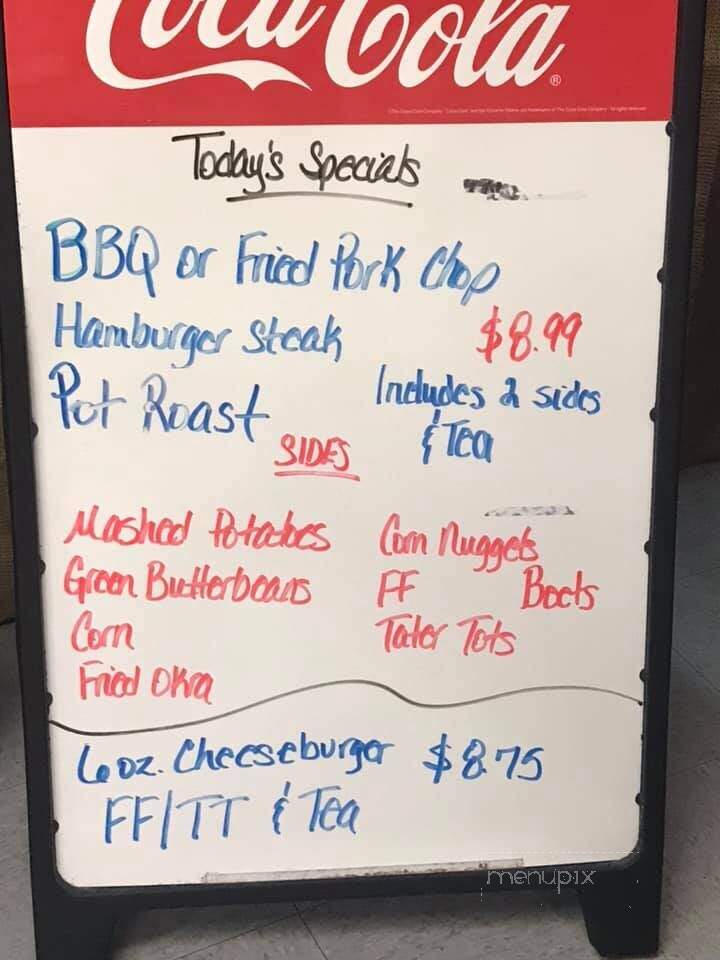 Coca-Cola
Today's Specials
BBQ or Fried Pork Chop
Hamburger Steak $8.99
Pot Roast Includes 2 sides
& Tea
SIDES
Mashed Potatoes Corn Nuggets
Green Butterbeans FF Beets
Corn Tater Tots
Fried Okra
6oz. Cheeseburger $8.75
FF/TT & Tea
menupix